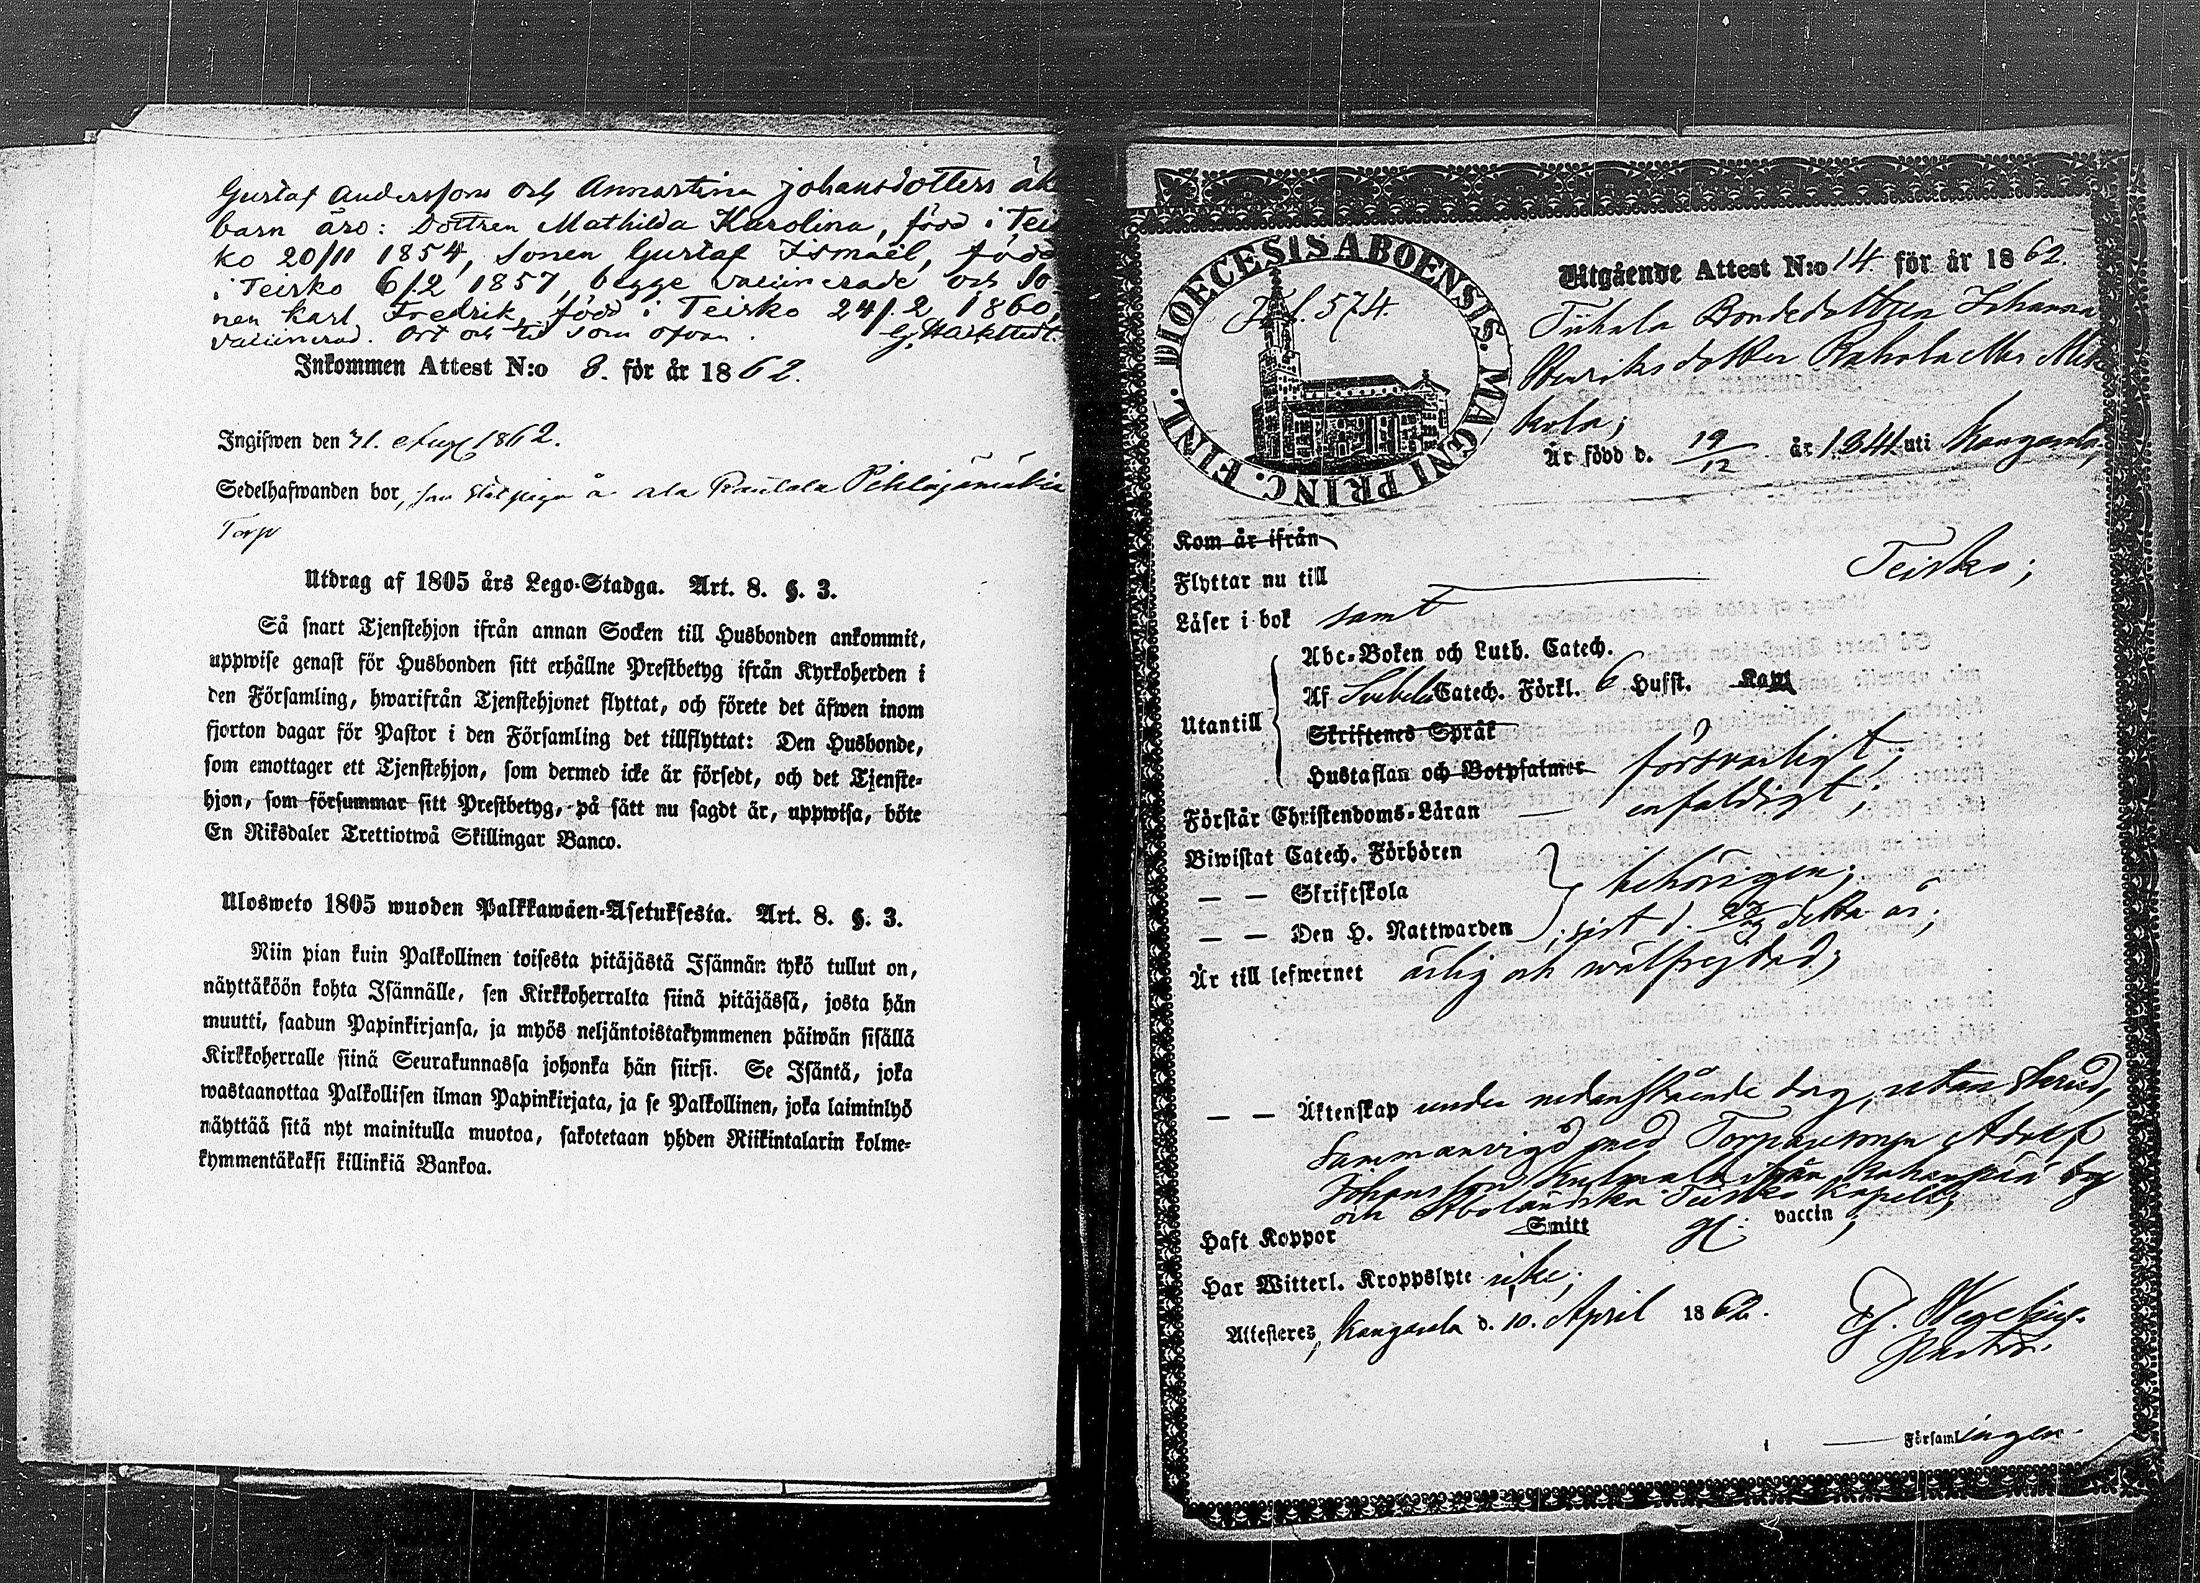 Gustaf Anderssons och Annastina Johansdotters äk
barn äro: Dottren Mathilda Karolina, född i Tei
ko 20/11 1854, Sonen Gustaf Ismaël, född
i Teisko 6/2 1857, begge vaccinerade och So
nen Karl Fredrik, född i Teisko 24/2 1860,
vaccinerad. Ort och tid som ofvan.
Inkommen Attest N:o 8. för år 1862.
Ingifwen den 31. Aug 1862.
Sedelhafwanden bor, å Ala Rautala Pihlajamäkia
Torp
Utdrag af 1805 års Lego-Stadga. Art. 8. §. 3.
Så snart Tjenstehjon ifrån annan Socken till Husbonden ankommit,
uppwise genast för Husbonden sitt erhållne Prestbetyg ifrån Kyrkoherden i
den Församling, hwarifrån Tjenstehjonet flyttat, och förete det äfwen inom
fjorton dagar för Pastor i den Församling det tillflyttat: Den Husbonde,
som emottager ett Tjenstehjon, som dermed icke är försedt, och det Tjenste-
hjon, som försummar sitt Prestbetyg, på sätt nu sagdt är, uppwisa, böte
En Riksdaler Trettiotwå Skillingar Banco.
Ulosweto 1805 wuoden Palkkawäen-Asetuksesta. Art. 8. §. 3.
Niin pian kuin Palkollinen toisesta pitäjästä Isännän tykö tullut on,
näyttäköön kohta Isännälle, sen Kirkkoherralta siinä pitäjässä, josta hän
muutti, saadun Papinkirjansa, ja myös neljäntoistakymmenen päiwän sisällä
Kirkkoherralle siinä Seurakunnassa johonka hän siirsi. Se Isäntä, joka
wastaanottaa Palkollisen ilman Papinkirjata, ja se Palkollinen, joka laiminlyö
näyttää sitä nyt mainitulla muotoa, sakotetaan yhden Riikintalarin kolme-
kymmentäkaksi killinkiä Bankoa.
DIOECESIS ABOENSIS. MAGNI PRINC. FINL.
Fol. 574.
Utgående Attest N:o 14. för år 1862.
Tiihala Bondedottren Johanna
Henriksdotter
kola;
Är född d. 19/12 år 1841 uti Kangasala;
Kom år ifrån
Flyttar nu till Teisko;
Läser i bok samt
Utantill
Abc-Boken och Luth. Catech.
Af Svebelii Catech. Förkl. 6 Hufst. Kap.
Skriftenes Språk
Hustaflan och Botpsalmer försvarligt;
Förstår Christendoms-Läran — enfaldigt;
Biwistat Catech. Förhören
— — Skriftskola behörigen;
— — Den H. Nattwarden ; sist d. detta år;
Är till lefwernet ärlig och wälfrejdad;
— — Äktenskap under nedanstående dag, utan
Sammanvigd med Torparesonen Adolf
Johansson från by
och Teisko Kapell;
Haft Koppor Smitt vaccin;
Har Witterl. Kroppslyte icke;
Attesteres, Kangasala d. 10. April 1862.
Pastor.
i — Församlingen.